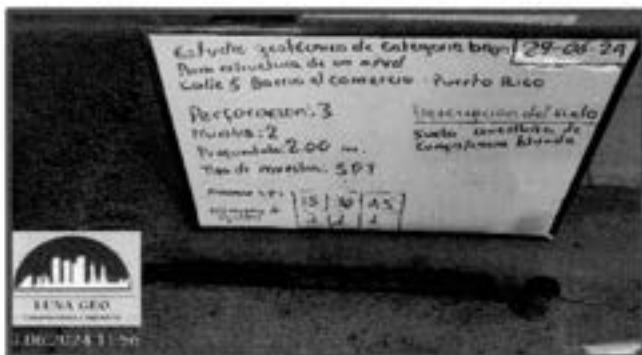 Estudio geotécnico de categoria baja 29-06-24
Para estructura de un nivel
Calle 5 Barrio el comercio - Puerto Rico
Perforacion: 3
Muestra: 2
Profundidad: 2.00 m.
Tipo de muestra: SPT
Descripcion del suelo
Suelo
de
Consistencia blanda
15 | 30 | 45
2 | 2 | 2
LUNA GEO
.06.2024 11:56